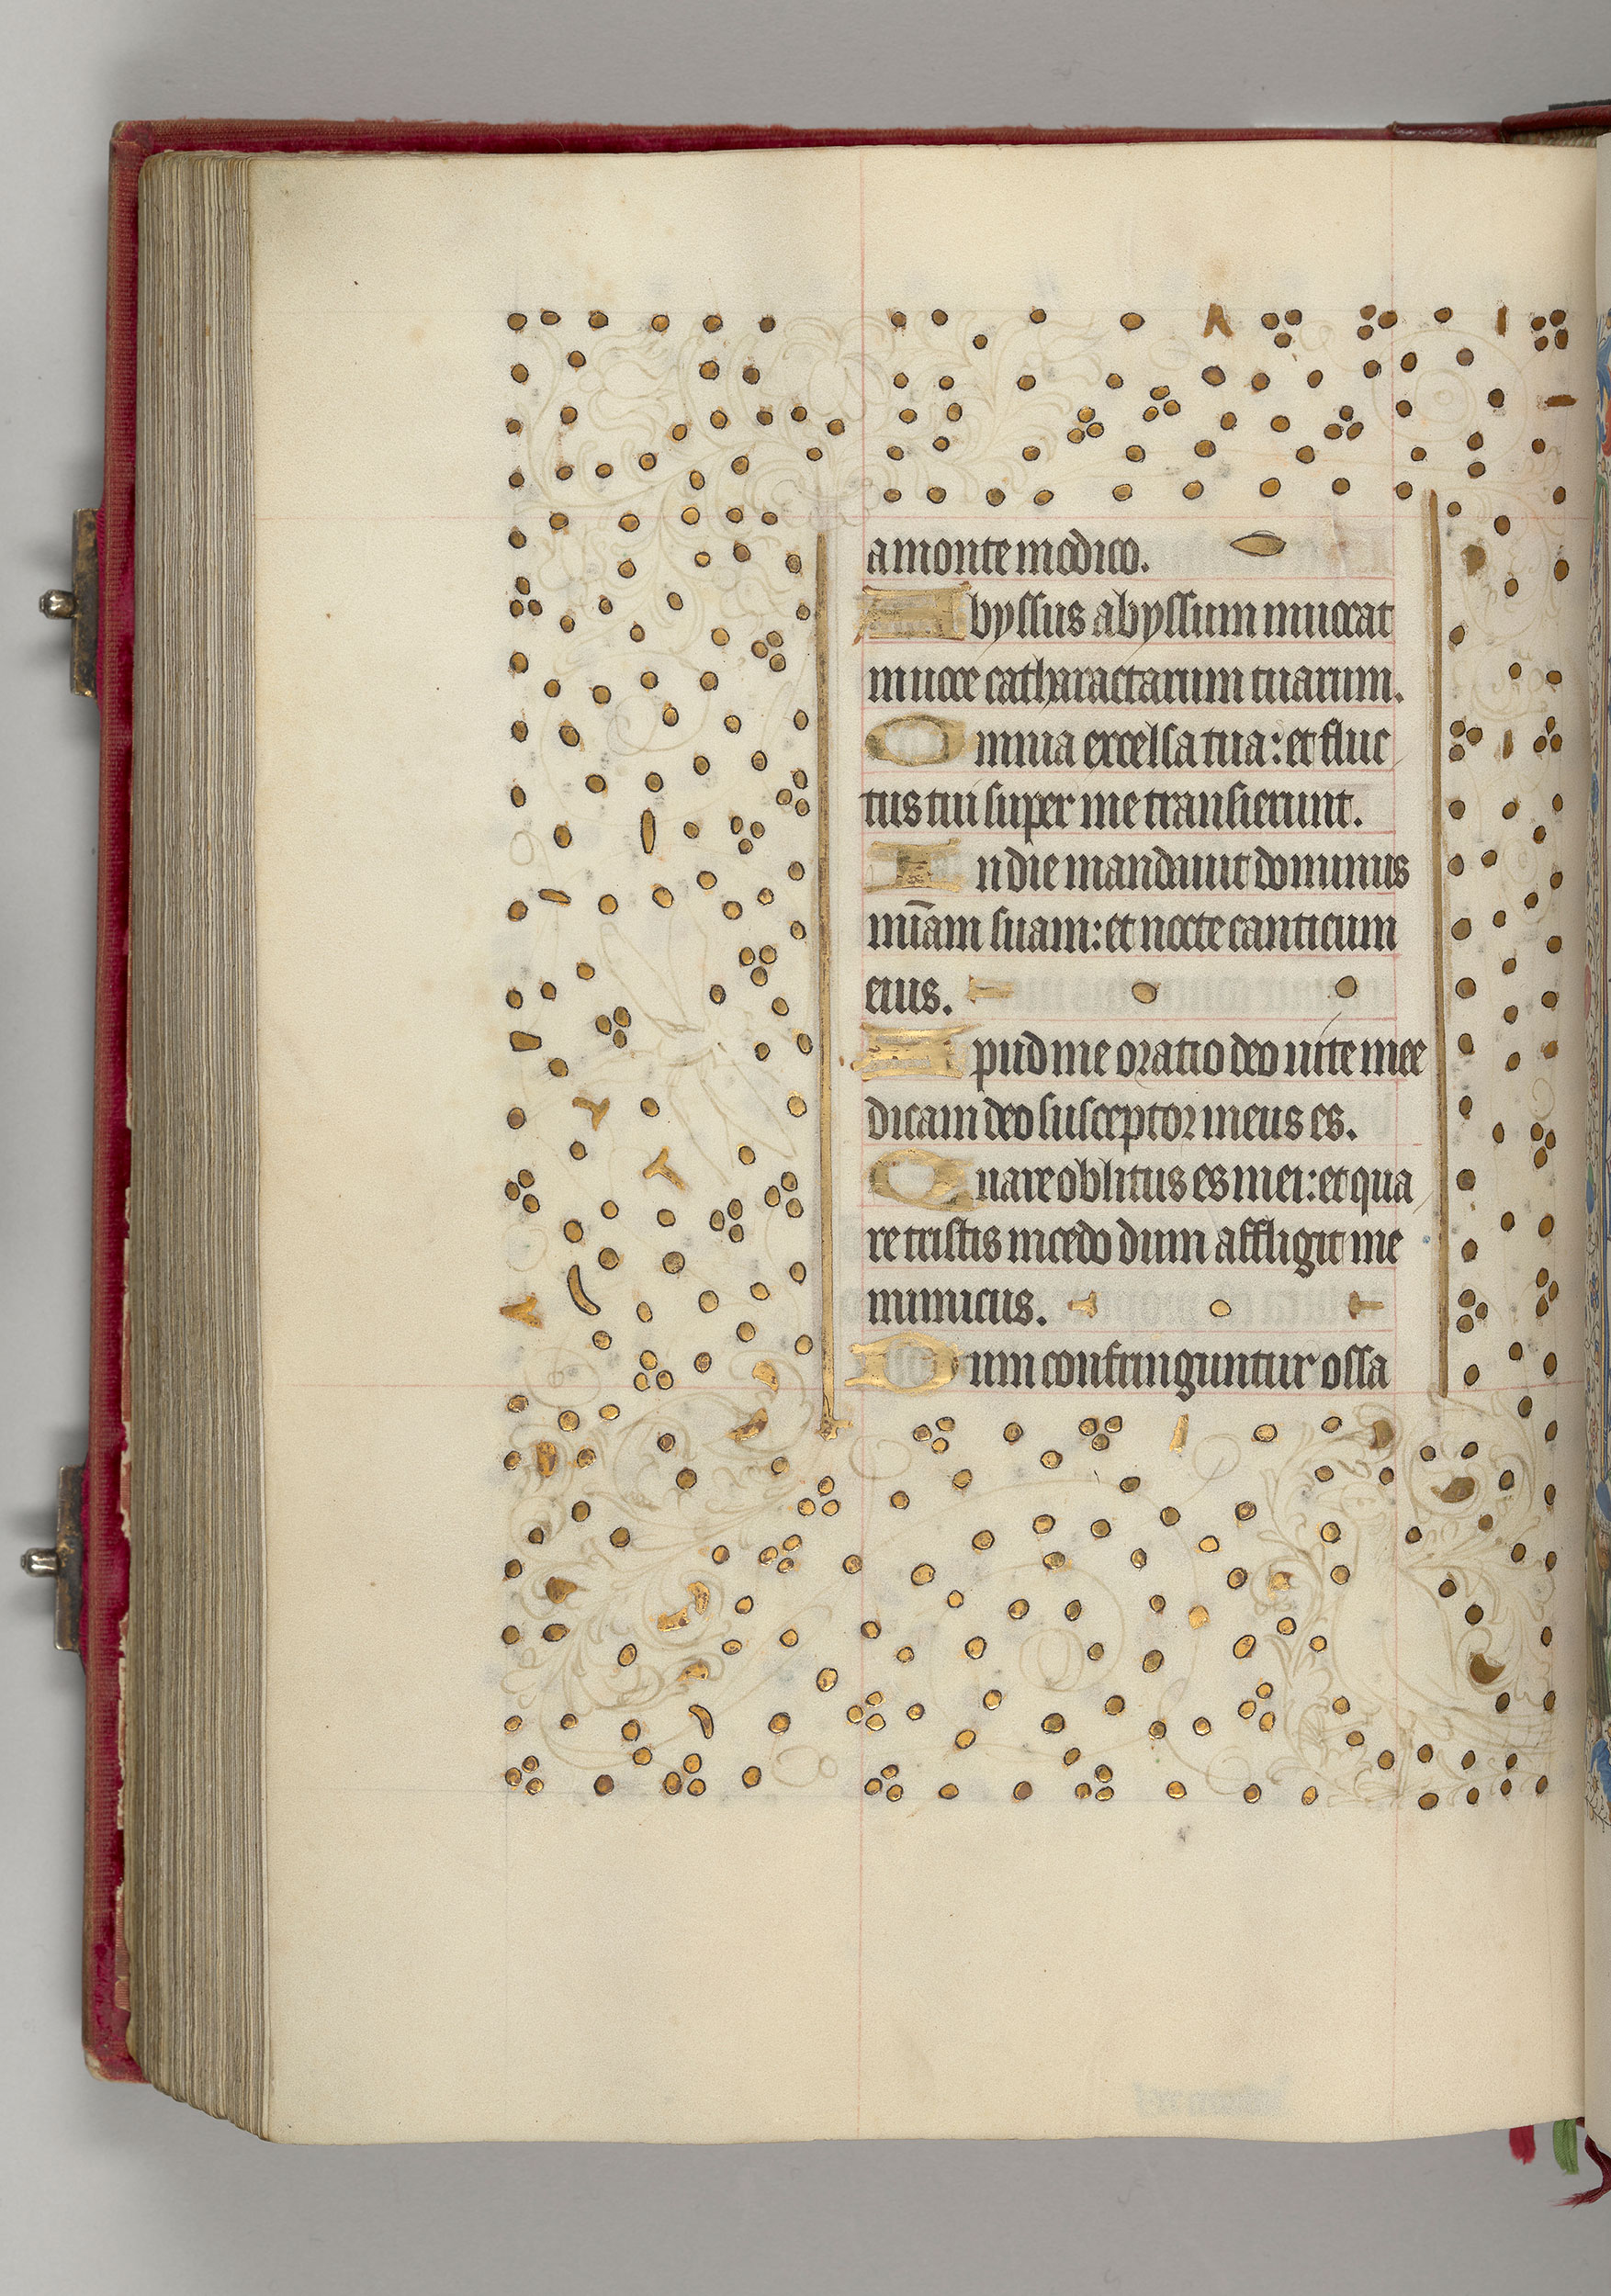 a monte modico.
Abyssus abyssum inuocat
in uoce catharactarum tuarum.
Omnia excelsa tua: et fluc
tus tui super me transierunt.
In die mandauit dominus
mīam suam: et nocte canticum
eius.
Apud me oratio deo uite mee
dicam deo susceptor meus es.
Quare oblitus es mei: et qua
re tristis incedo dum affligit me
inimicus.
Dum confringuntur ossa